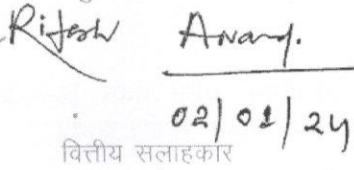 Ritesh Anand.
02/01/24
वित्तीय सलाहकार